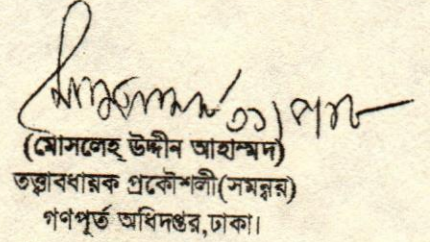 (মোসলেহ্ উদ্দীন আহাম্মদ)
তত্ত্বাবধায়ক প্রকৌশলী(সমন্বয়)
গণপূর্ত অধিদপ্তর,ঢাকা।